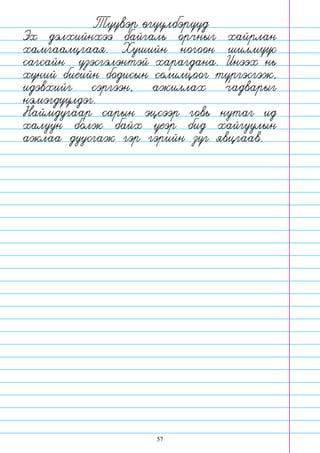 Түүвэр өгүүлбэрүүд
Эх дэлхийнхээ байгаль оргныг хайрлан
хамгаалцгаая. Хушийн ногоон шилмүүс
сагсайн үзэсгэлэнтэй харагдана. Инээх нь
хүний биеийн бодисын солилцоог түргэсгэж,
идэвхийг сэргээн, ажиллах чадварыг
нэмэгдүүлдэг.
Наймдугаар сарын эцсээр говь нутаг ид
халуун болж байх үеэр бид хайгуулын
ажлаа дуусгаж гэр гэрийн зүг явцгаав.
57